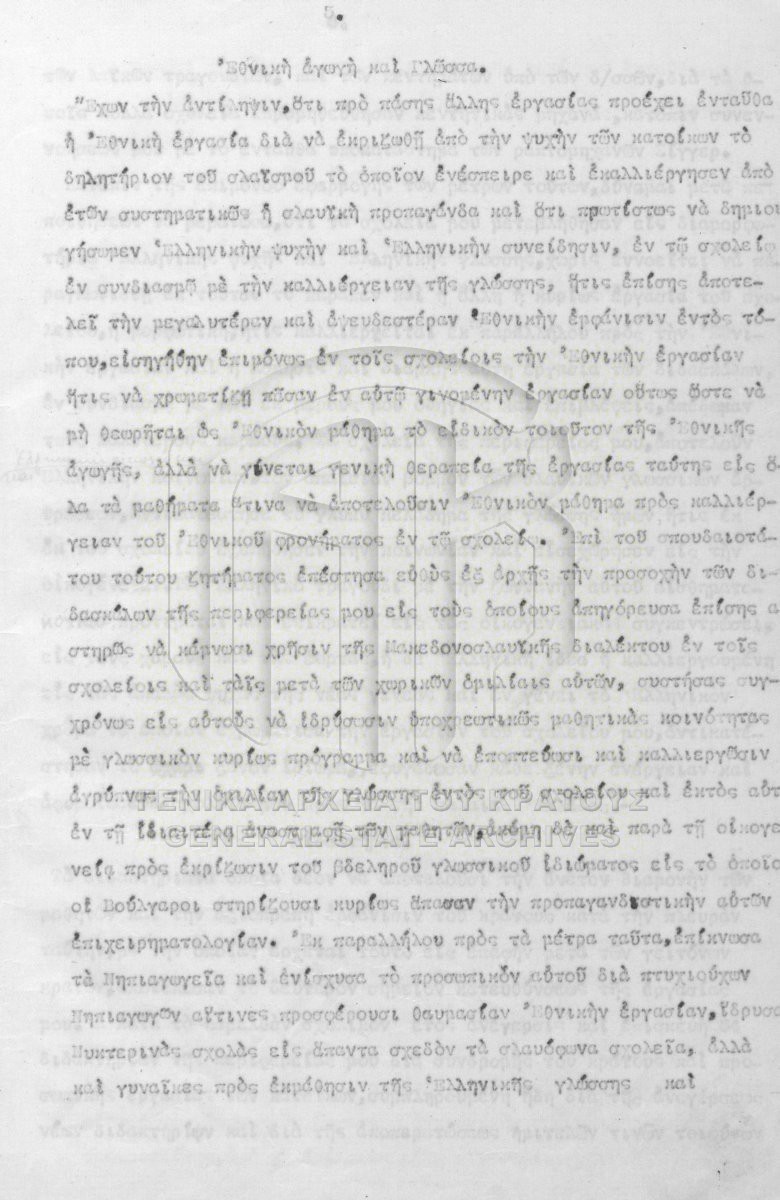 5.
Ἐθνικὴ ἀγωγὴ καὶ Γλῶσσα.
Ἔχων τὴν ἀντίληψιν, ὅτι πρὸ πάσης ἄλλης ἐργασίας προέχει ἐνταῦθα
ἡ Ἐθνικὴ ἐργασία διὰ νὰ ἐκριζωθῇ ἀπὸ τὴν ψυχὴν τῶν κατοίκων τὸ
δηλητήριον τοῦ σλαϊσμοῦ τὸ ὁποῖον ἐνέσπειρε καὶ ἐκαλλιέργησεν ἀπὸ
ἐτῶν συστηματικῶς ἡ σλαυϊκὴ προπαγάνδα καὶ ὅτι πρωτίστως νὰ δημιου
γήσωμεν Ἑλληνικὴν ψυχὴν καὶ Ἑλληνικὴν συνείδησιν, ἐν τῷ σχολείῳ
ἐν συνδιασμῷ μὲ τὴν καλλιέργειαν τῆς γλώσσης, ἥτις ἐπίσης ἀποτε-
λεῖ τὴν μεγαλυτέραν καὶ ἀψευδεστέραν Ἐθνικὴν ἐμφάνισιν ἐντὸς τό-
που, εἰσηγήθην ἐπιμόνως ἐν τοῖς σχολείοις τὴν Ἐθνικὴν ἐργασίαν
ἥτις νὰ χρωματίζῃ πᾶσαν ἐν αὐτῷ γινομένην ἐργασίαν οὕτως ὥστε νὰ
μὴ θεωρῆται ὡς Ἐθνικὸν μάθημα τὸ εἰδικὸν τοιοῦτον τῆς Ἐθνικῆς
ἀγωγῆς, ἀλλὰ νὰ γίνεται γενικὴ θεραπεία τῆς ἐργασίας ταύτης εἰς ὅ-
λα τὰ μαθήματα ἅτινα νὰ ἀποτελοῦσιν Ἐθνικὸν μάθημα πρὸς καλλιέρ-
γειαν τοῦ Ἐθνικοῦ φρονήματος ἐν τῷ σχολείῳ. Ἐπὶ τοῦ σπουδαιοτά-
του τούτου ζητήματος ἐπέστησα εὐθὺς ἐξ ἀρχῆς τὴν προσοχὴν τῶν δι-
δασκάλων τῆς περιφερείας μου εἰς τοὺς ὁποίους ἀπηγόρευσα ἐπίσης α
στηρῶς νὰ κάμνωσι χρῆσιν τῆς Μακεδονοσλαυϊκῆς διαλέκτου ἐν τοῖς
σχολείοις καὶ ταῖς μετὰ τῶν χωρικῶν ὁμιλίαις αὐτῶν, συστήσας συγ-
χρόνως εἰς αὐτοὺς νὰ ἱδρύσωσιν ὑποχρεωτικῶς μαθητικὰς κοινότητας
μὲ γλωσσικὸν κυρίως πρόγραμμα καὶ νὰ ἐποπτεύωσι καὶ καλλιεργῶσιν
ἀγρύπνως τὴν ὁμιλίαν τῆς γλώσσης ἐντὸς τοῦ σχολείου καὶ ἐκτὸς αὐτ
ἐν τῇ ἰδιαιτέρᾳ ἀναστροφῇ τῶν μαθητῶν, ἀκόμη δὲ καὶ παρὰ τῇ οἰκογε
νείᾳ πρὸς ἐκρίζωσιν τοῦ βδεληροῦ γλωσσικοῦ ἰδιώματος εἰς τὸ ὁποῖο
οἱ Βούλγαροι στηρίζουσι κυρίως ἅπασαν τὴν προπαγανδιστικὴν αὐτῶν
ἐπιχειρηματολογίαν. Ἐκ παραλλήλου πρὸς τὰ μέτρα ταῦτα, ἐπίκνωσα
τὰ Νηπιαγωγεῖα καὶ ἐνίσχυσα τὸ προσωπικὸν αὐτοῦ διὰ πτυχιούχων
Νηπιαγωγῶν αἵτινες προσφέρουσι θαυμασίαν Ἐθνικὴν ἐργασίαν, ἵδρυσα
Νυκτερινὰς σχολὰς εἰς ἅπαντα σχεδὸν τὰ σλαυόφωνα σχολεῖα, ἀλλὰ
καὶ γυναῖκες πρὸς ἐκμάθησιν τῆς Ἑλληνικῆς γλώσσης καὶ
ΓΕΝΙΚΑ ΑΡΧΕΙΑ ΤΟΥ ΚΡΑΤΟΥΣ
GENERAL STATE ARCHIVES